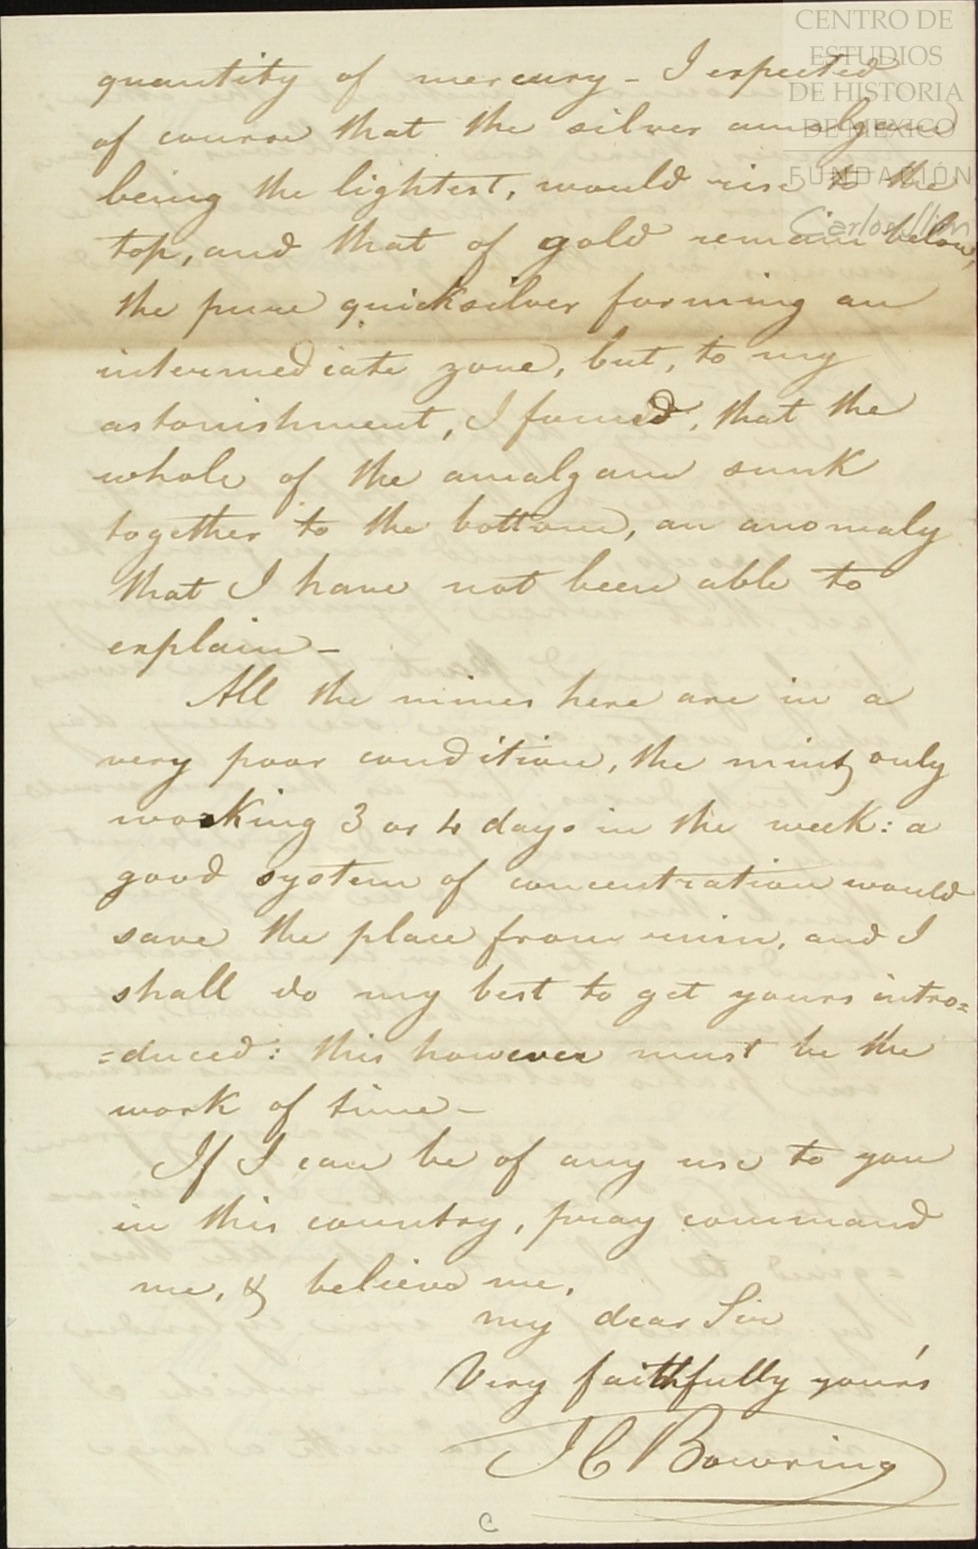 CENTRO DE
ESTUDIOS
DE HISTORIA
DE MEXICO
FUNDACIÓN
Carlos Slim
quantity of mercury - I expected
of course that the silver amalgam
being the lightest, would rise to the
top, and that of gold remain below,
the pure quicksilver forming an
intermediate zone, but, to my
astonishment, I found, that the
whole of the amalgam sunk
together to the bottom, an anomaly
that I have not been able to
explain -
All the mines here are in a
very poor condition, the mint only
working 3 or 4 days in the week: a
good system of concentration would
save the place from ruin, and I
shall do my best to get yours intro=
=duced: this however must be the
work of time -
If I can be of any use to you
in this country, pray command
me, & believe me,
my dear Sir
Very faithfully your's
J C Bowring
C